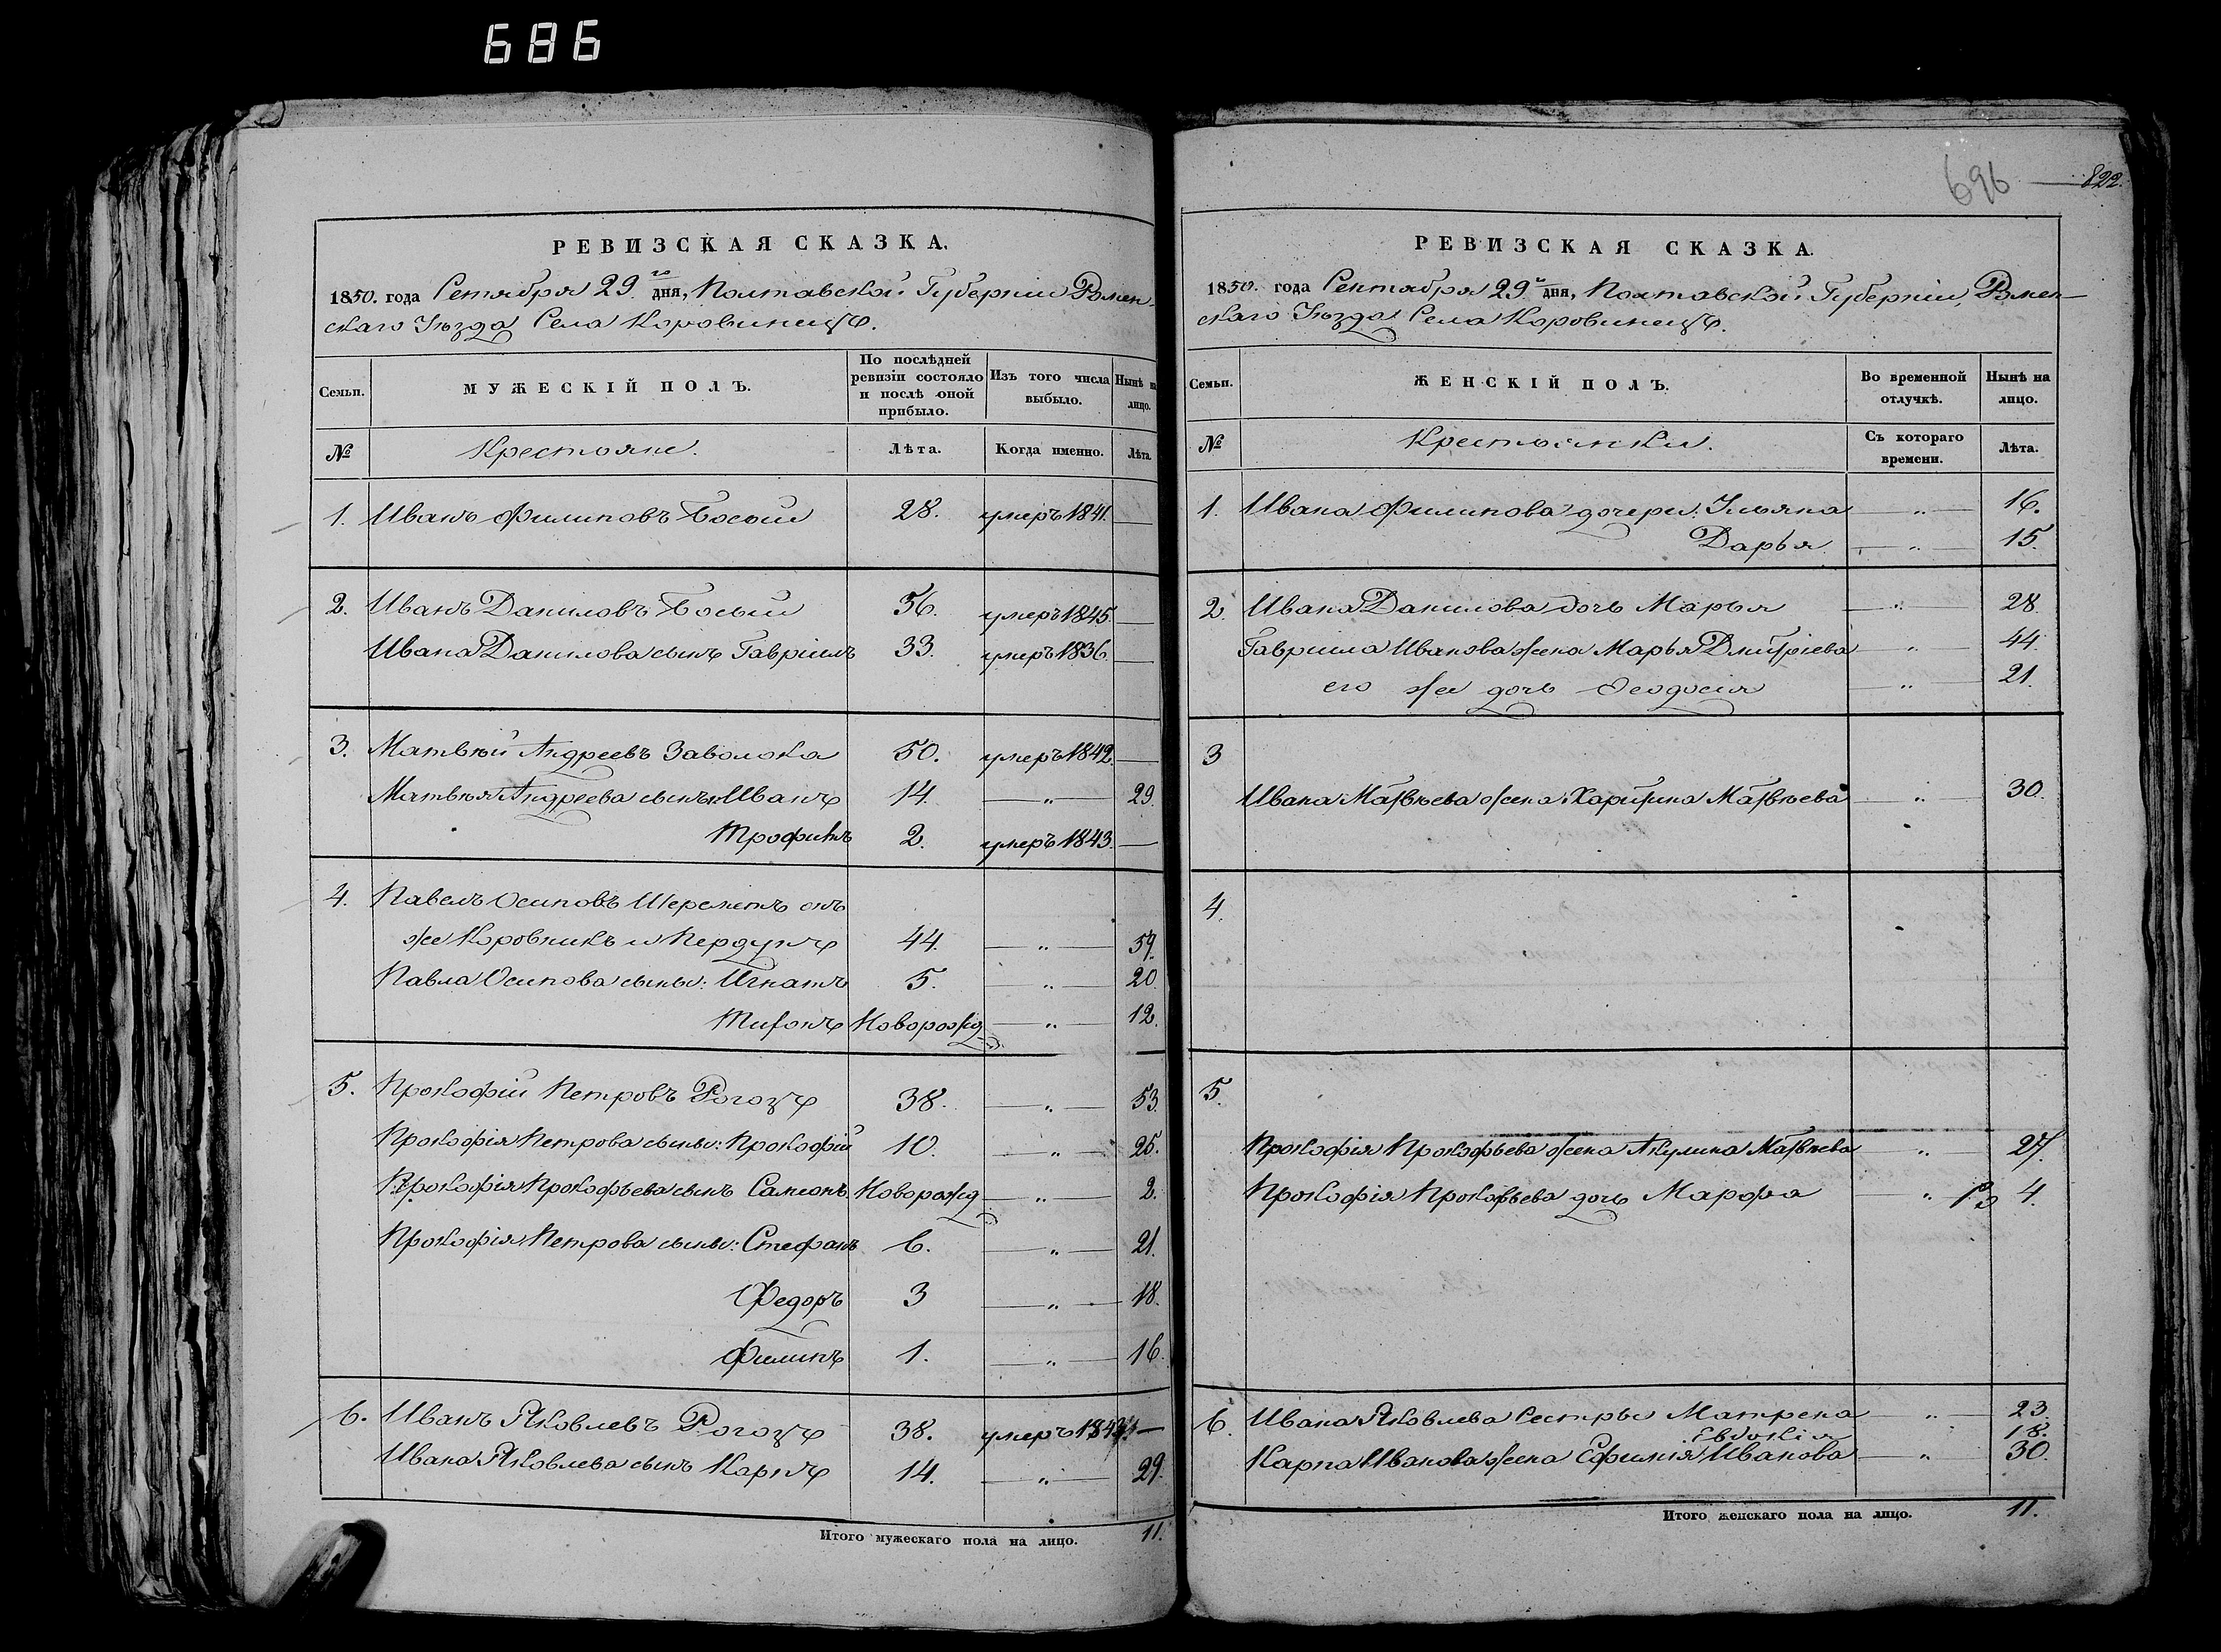 686
РЕВИЗСКАЯ СКАЗКА.
1850. года Сентября 29го дня, Полтавской Губерніи Ромен-
скаго Уѣзда Села Коровинецъ.
Семьи.
МУЖЕСКІЙ ПОЛЪ.
По послѣдней ревизіи состояло и послѣ оной прибыло.
Изъ того числа выбыло.
Нынѣ на лицо.
№
Крестьяне.
Лѣта.
Когда именно.
Лѣта.
1. Иванъ Филиповъ Босый 28. умеръ 1841. —
2. Иванъ Даниловъ Босый 56. умеръ 1845. —
Ивана Данилова сынъ Гавріилъ 33. умеръ 1836. —
3. Матвѣй Андреевъ Заволока 50. умеръ 1842. —
Матвѣя Андреева сынъ: Иванъ 14. — „ — 29.
Трофимъ 2. умеръ 1843. —
4. Павелъ Осиповъ Шереметъ онъ
же Коровникъ и Пердунъ 44. — „ — 59.
Павла Осипова сыны: Игнатъ 5. — „ — 20.
Тихонъ Новорожд. — „ — 12.
5. Прокофій Петровъ Рогозъ 38. — „ — 53.
Прокофія Петрова сыны: Прокофій 10. — „ — 25.
Прокофія Прокофьева сынъ Самсонъ Новорожд. — „ — 2.
Прокофія Петрова сыны: Стефанъ 6. — „ — 21.
Федоръ 3 — „ — 18.
Филипъ 1. — „ — 16.
6. Иванъ Яковлевъ Рогозъ 38. умеръ —
Ивана Яковлева сынъ Карпъ 14. — „ — 29.
Итого мужескаго пола на лицо. 11.
696 — 822.
РЕВИЗСКАЯ СКАЗКА.
1850. года Сентября 29го дня, Полтавской Губерніи, Ромен-
скаго Уѣзда Села Коровинецъ.
Семьи.
ЖЕНСКІЙ ПОЛЪ.
Во временной отлучкѣ.
Нынѣ на лицо.
№
Крестьянки.
Съ котораго времени.
Лѣта.
1. Ивана Филипова дочери: Ульяна — „ — 16.
Дарья — „ — 15.
2. Ивана Данилова дочь Марья — „ — 28.
Гавриила Иванова жена Марья Дмитріева — „ — 44.
его же дочь Феодосія — „ — 21.
3
Ивана Матвѣева жена: Харитина Матвѣева — „ — 30.
4.
5.
Прокофія Прокофьева жена Акулина Матвѣева — „ — 27.
Прокофія Прокофьева дочь Марфа — „ — 4.
6. Ивана Яковлева сестры Матрена — „ — 23.
Евдокія 18.
Карпа Иванова жена Ефимія Иванова — „ — 30.
Итого женскаго пола на лицо. 11.